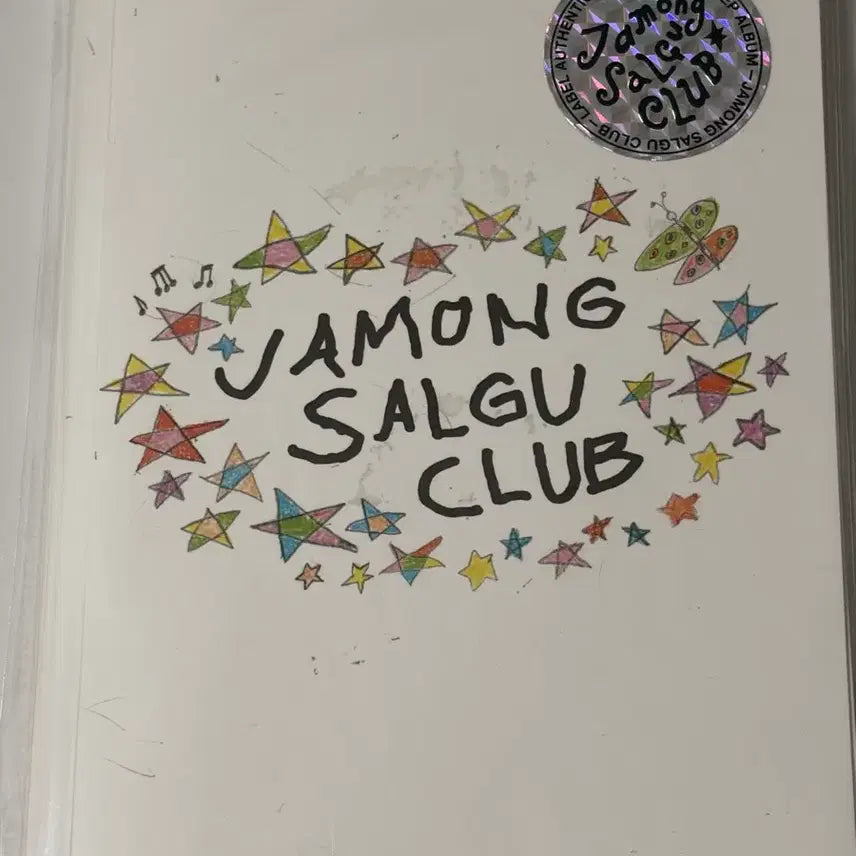 Jamong
Salgu
CLUB
EP ALBUM – JAMONG SALGU CLUB – LABEL AUTHENTIC
JAMONG
SALGU
CLUB